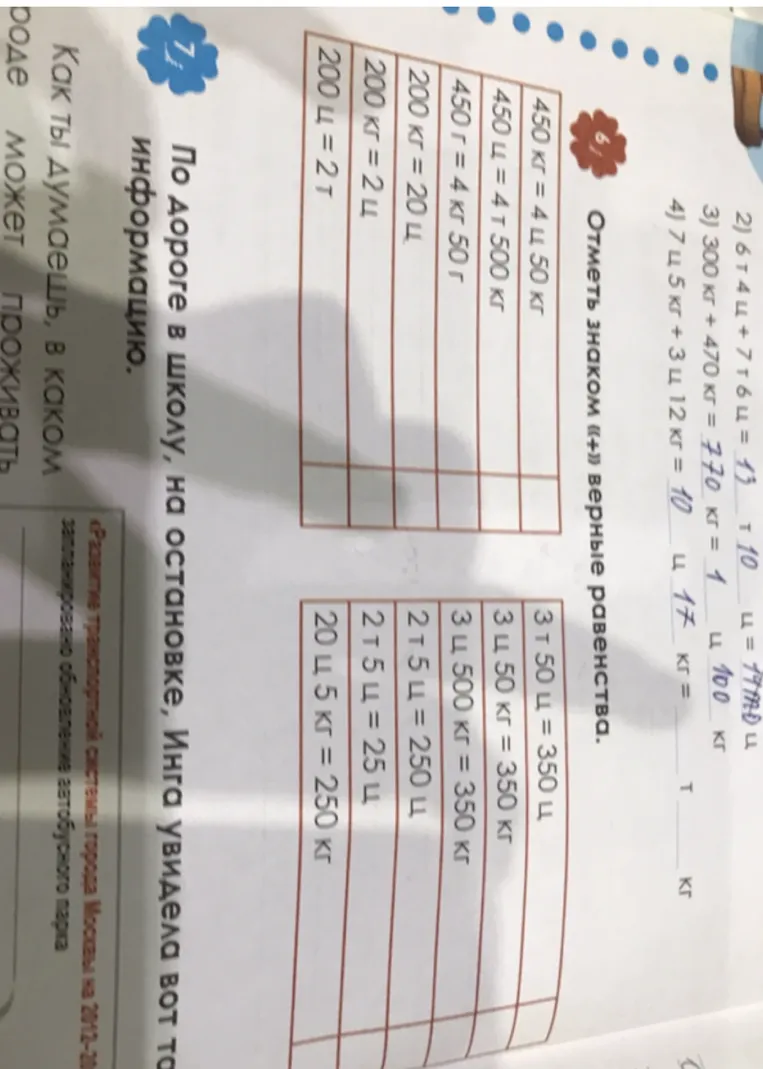 2) 6 т 4 ц + 7 т 6 ц = 13 т 10 ц = ц
3) 300 кг + 470 кг = 770 кг = 1 ц 100 кг
4) 7 ц 5 кг + 3 ц 12 кг = 10 ц 17 кг = т кг
6
Отметь знаком «+» верные равенства.
450 кг = 4 ц 50 кг
450 ц = 4 т 500 кг
450 г = 4 кг 50 г
200 кг = 20 ц
200 кг = 2 ц
200 ц = 2 т
3 т 50 ц = 350 ц
3 ц 50 кг = 350 кг
3 ц 500 кг = 350 кг
2 т 5 ц = 250 ц
2 т 5 ц = 25 ц
20 ц 5 кг = 250 кг
7
По дороге в школу, на остановке, Инга увидела вот
информацию.
Как ты думаешь, в каком
роде может проживать
«Развитие транспортной системы города Москвы на 2012-20
запланировано обновление автобусного парка